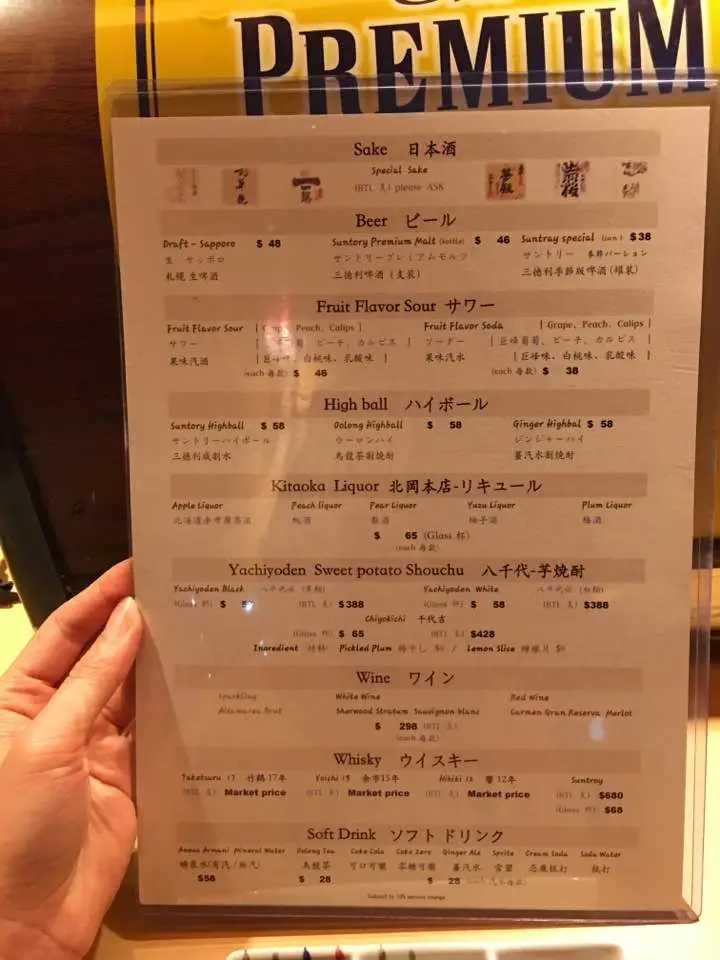 PREMIUM
Sake 日本酒
Special Sake
(BTL 支) please ASK
Beer ビール
Draft - Sapporo $ 48 Suntory Premium Malt (bottle) $ 46 Suntray special (can) $38
生 サッポロ サントリープレミアムモルツ サントリー 季節バーション
札幌生啤酒 三徳利啤酒 (支装) 三徳利季節版啤酒 (罐装)
Fruit Flavor Sour サワー
Fruit Flavor Sour [ Grape, Peach, Calips ] Fruit Flavor Soda [ Grape, Peach, Calips ]
サワー 葡萄、ピーチ、カルピス ] ソーダー [ 巨峰葡萄、ピーチ、カルピス ]
果味汽酒 [ 巨峰味、白桃味、乳酸味 ] 果味汽水 [ 巨峰味、白桃味、乳酸味 ]
(each 每款) $ 46 (each 每款) $ 38
High ball ハイボール
Suntory Highball $ 58 Oolong Highball $ 58 Ginger Highbal $ 58
サントリーハイボール ウーロンハイ ジンジャーハイ
三徳利威割水 烏龍茶割焼酎 薑汽水割焼酎
Kitaoka Liquor 北岡本店-リキュール
Apple Liquor Peach liquor Pear Liquor Yuzu Liquor Plum Liquor
桃酒 梨酒 柚子酒 梅酒
$ 65 (Glass 杯)
(each 每款)
Yachiyoden Sweet potato Shouchu 八千代-芋焼酎
Yachiyoden Black Yachiyoden White
(Glass 杯) $ (BTL 支) $388 (Glass 杯) $ 58 (BTL 支) $388
Chiyokichi 千代吉
(Glass 杯) $ 65 (BTL 支) $428
Inoredient 材料: Pickled Plum 梅干し / Lemon Slice 檸檬片
Wine ワイン
Sparkling White Wine Red Wine
Altamarea Brut Sherwood Stratum Sauvignon blanc Carmen Gran Reserva Merlot
$ 298 (BTL 支)
(each 每款)
Whisky ウイスキー
Taketsuru 17 竹鶴17年 Yoichi 15 余市15年 Hibiki 12 響12年 Suntroy
(BTL 支) Market price (BTL 支) Market price (BTL 支) Market price (BTL 支) $680
(Glass 杯) $68
Soft Drink ソフトドリンク
Acqua Armani Mineral Water Oolong Tea Coke Cola Coke Zero Ginger Ale Sprite Cream Soda Soda Water
烏龍茶 可口可樂 零糖可樂 薑汽水 雪碧 忌廉梳打 梳打
$58 $ 28 $ 28
Subject to 10% service charge